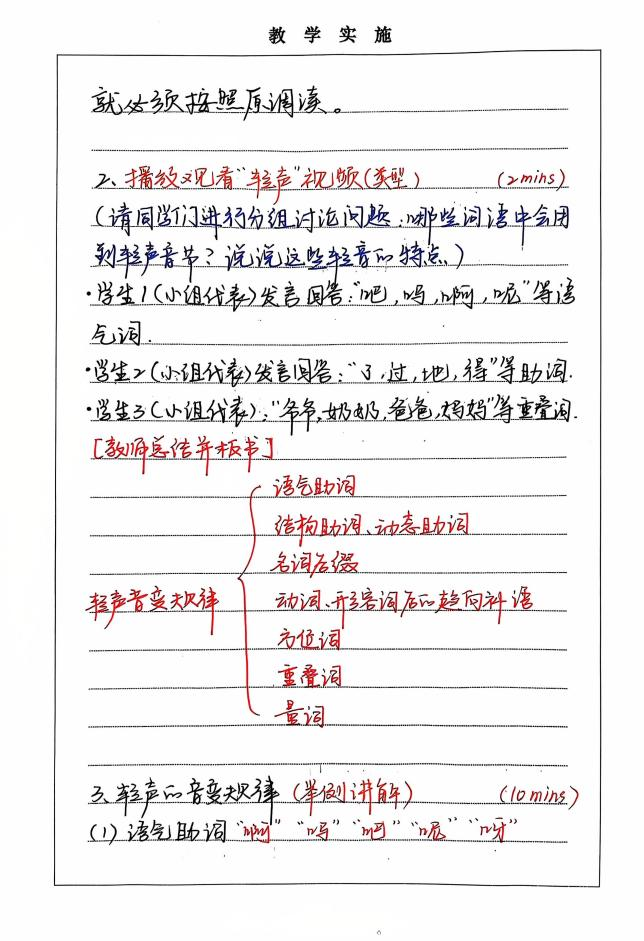 教学实施
就必须按照原调读。
2、播放观看“轻声”视频(类型) (2mins)
(请同学们进行分组讨论问题:哪些词语中会用
到轻声音节?说说这些轻音的特点。)
·学生1(小组代表)发言回答:“吧,吗,啊,呢”等语
气词.
·学生2(小组代表)发言回答:“了,过,地,得”等助词.
·学生3(小组代表):“爷爷,奶奶,爸爸,妈妈”等重叠词.
[教师总结并板书]
语气助词
结构助词、动态助词
名词后缀
轻声音变规律
动词、形容词后的趋向补语
方位词
重叠词
量词
3、轻声的音变规律(举例讲解) (10mins)
(1)语气助词“啊”“吗”“吧”“呢”“呀”